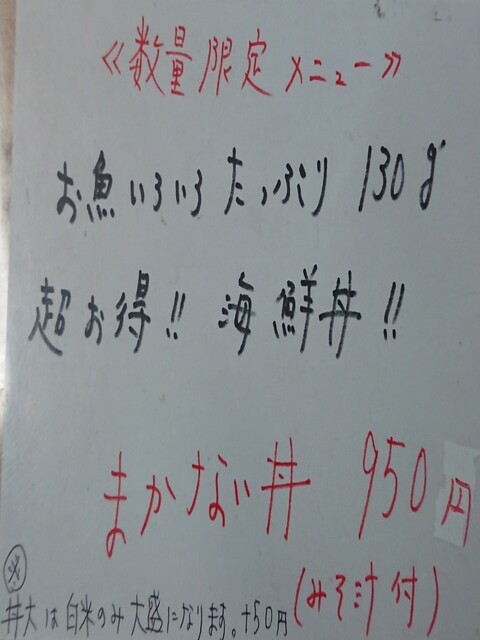 《数量限定メニュー》
お魚いろいろたっぷり 130g
超お得!! 海鮮丼!!
まかない丼 950円
(みそ汁付)
※
丼大は白米のみ大盛になります。+50円